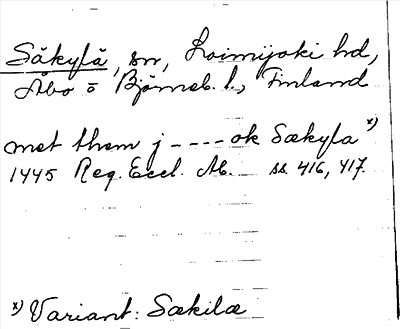 Säkylä, sn, Loimijoki hd,
Åbo o Björneb. l., Finland
met them j ---- ok Sækyla x)
1445 Reg. Eccl. Ab. ss 416, 417.
x) Variant: Sækilæ